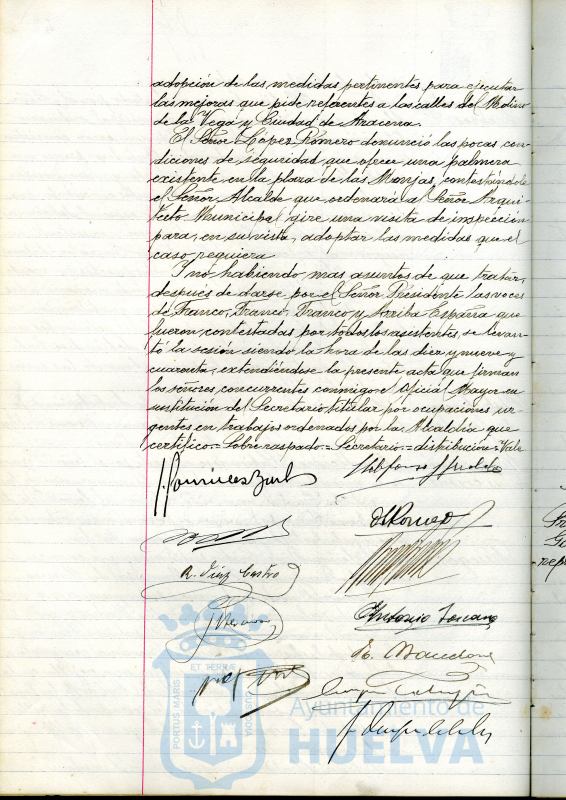 adopción de las medidas pertinentes para ejecutar
las mejoras que pide referentes a las calles del Molino
de la Vega y Ciudad de Aracena.
El Señor López Romero denunció las pocas con-
diciones de seguridad que ofrece una palmera
existente en la plaza de las Monjas, contestándole
el Señor Alcalde que ordenará al Señor Arqui-
tecto Municipal gire una visita de inspección
para, en su vista, adoptar las medidas que el
caso requiera
Y no habiendo mas asuntos de que tratar,
después de darse por el Señor Presidente las voces
de Franco, Franco, Franco y Arriba España que
fueron contestadas por todos los asistentes, se levan-
tó la sesión siendo la hora de las diez y nueve y
cuarenta, extendiéndose la presente acta que firman
los señores concurrentes conmigo el Oficial Mayor en
sustitución del Secretario titular por ocupaciones ur-
gentes en trabajos ordenados por la Alcaldía que
certifico.= Sobre raspado = Secretario.= distribución = Vale
R. Díaz Castro
Antonio Toscano
ET TERRÆ
PORTUS MARIS
CUSTODIA
Ayuntamiento de
HUELVA